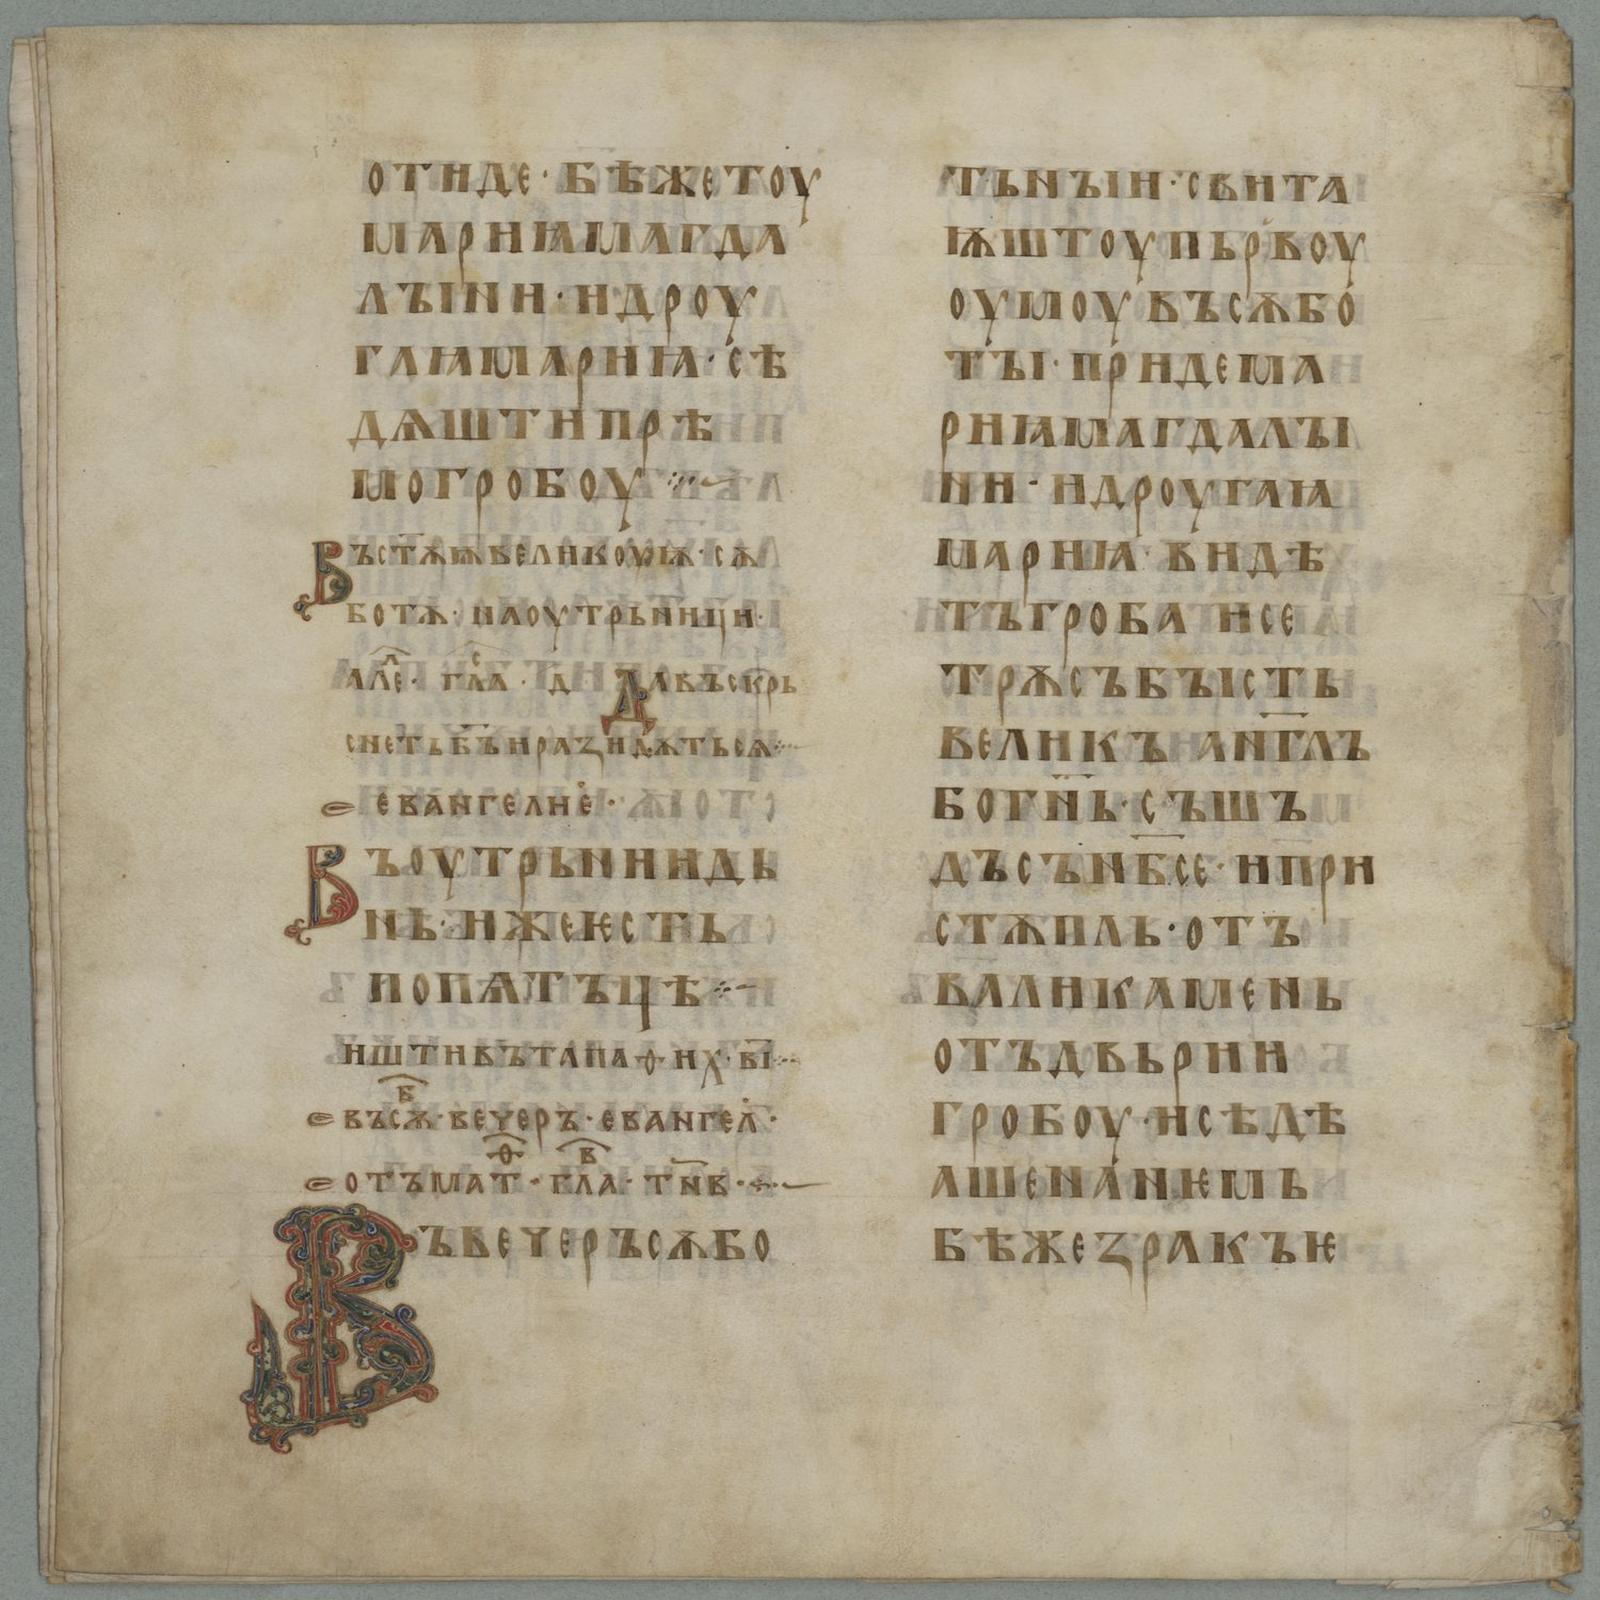 отиде · бѣже тоу
мариꙗ магда
лꙑни · и дроу
гаꙗ мариꙗ · сѣ
дѧшти прѣ
мо гробоу
Въ стѫѭ великоуѭ · сѫ
ботѫ · на оутрьници ·
але҇л · гла҇с · д҃ Да въскрь
снеть б҃ъ и разидѫться
евангелие ·
Въ оутрьнии дь
нь · иже ѥсть
по пѧтъцѣ
ишти въ тапа ѳих · в҃і
въ сѫб · вечеръ · евангел ·
отъ мат҇ѳ · гла҇в · т҃нв ·
Въ вечеръ сѫбо
тьнꙑи · свита
ѭштоу пьрвоу
оумоу въ сѫбо
тꙑ · приде ма
риꙗ магдалꙑ
ни · и дроугаꙗ
мариꙗ видѣ
тъ гроба и се
трѫсъ бꙑсть
великъ анг҃лъ
бо г҃нь · съшь
дъ съ нб҃се · и при
стѫпль · отъ
вали камень
отъ двьрии
гробоу · и сѣдѣ
аше на нѥмь
бѣ же зракъ ѥ